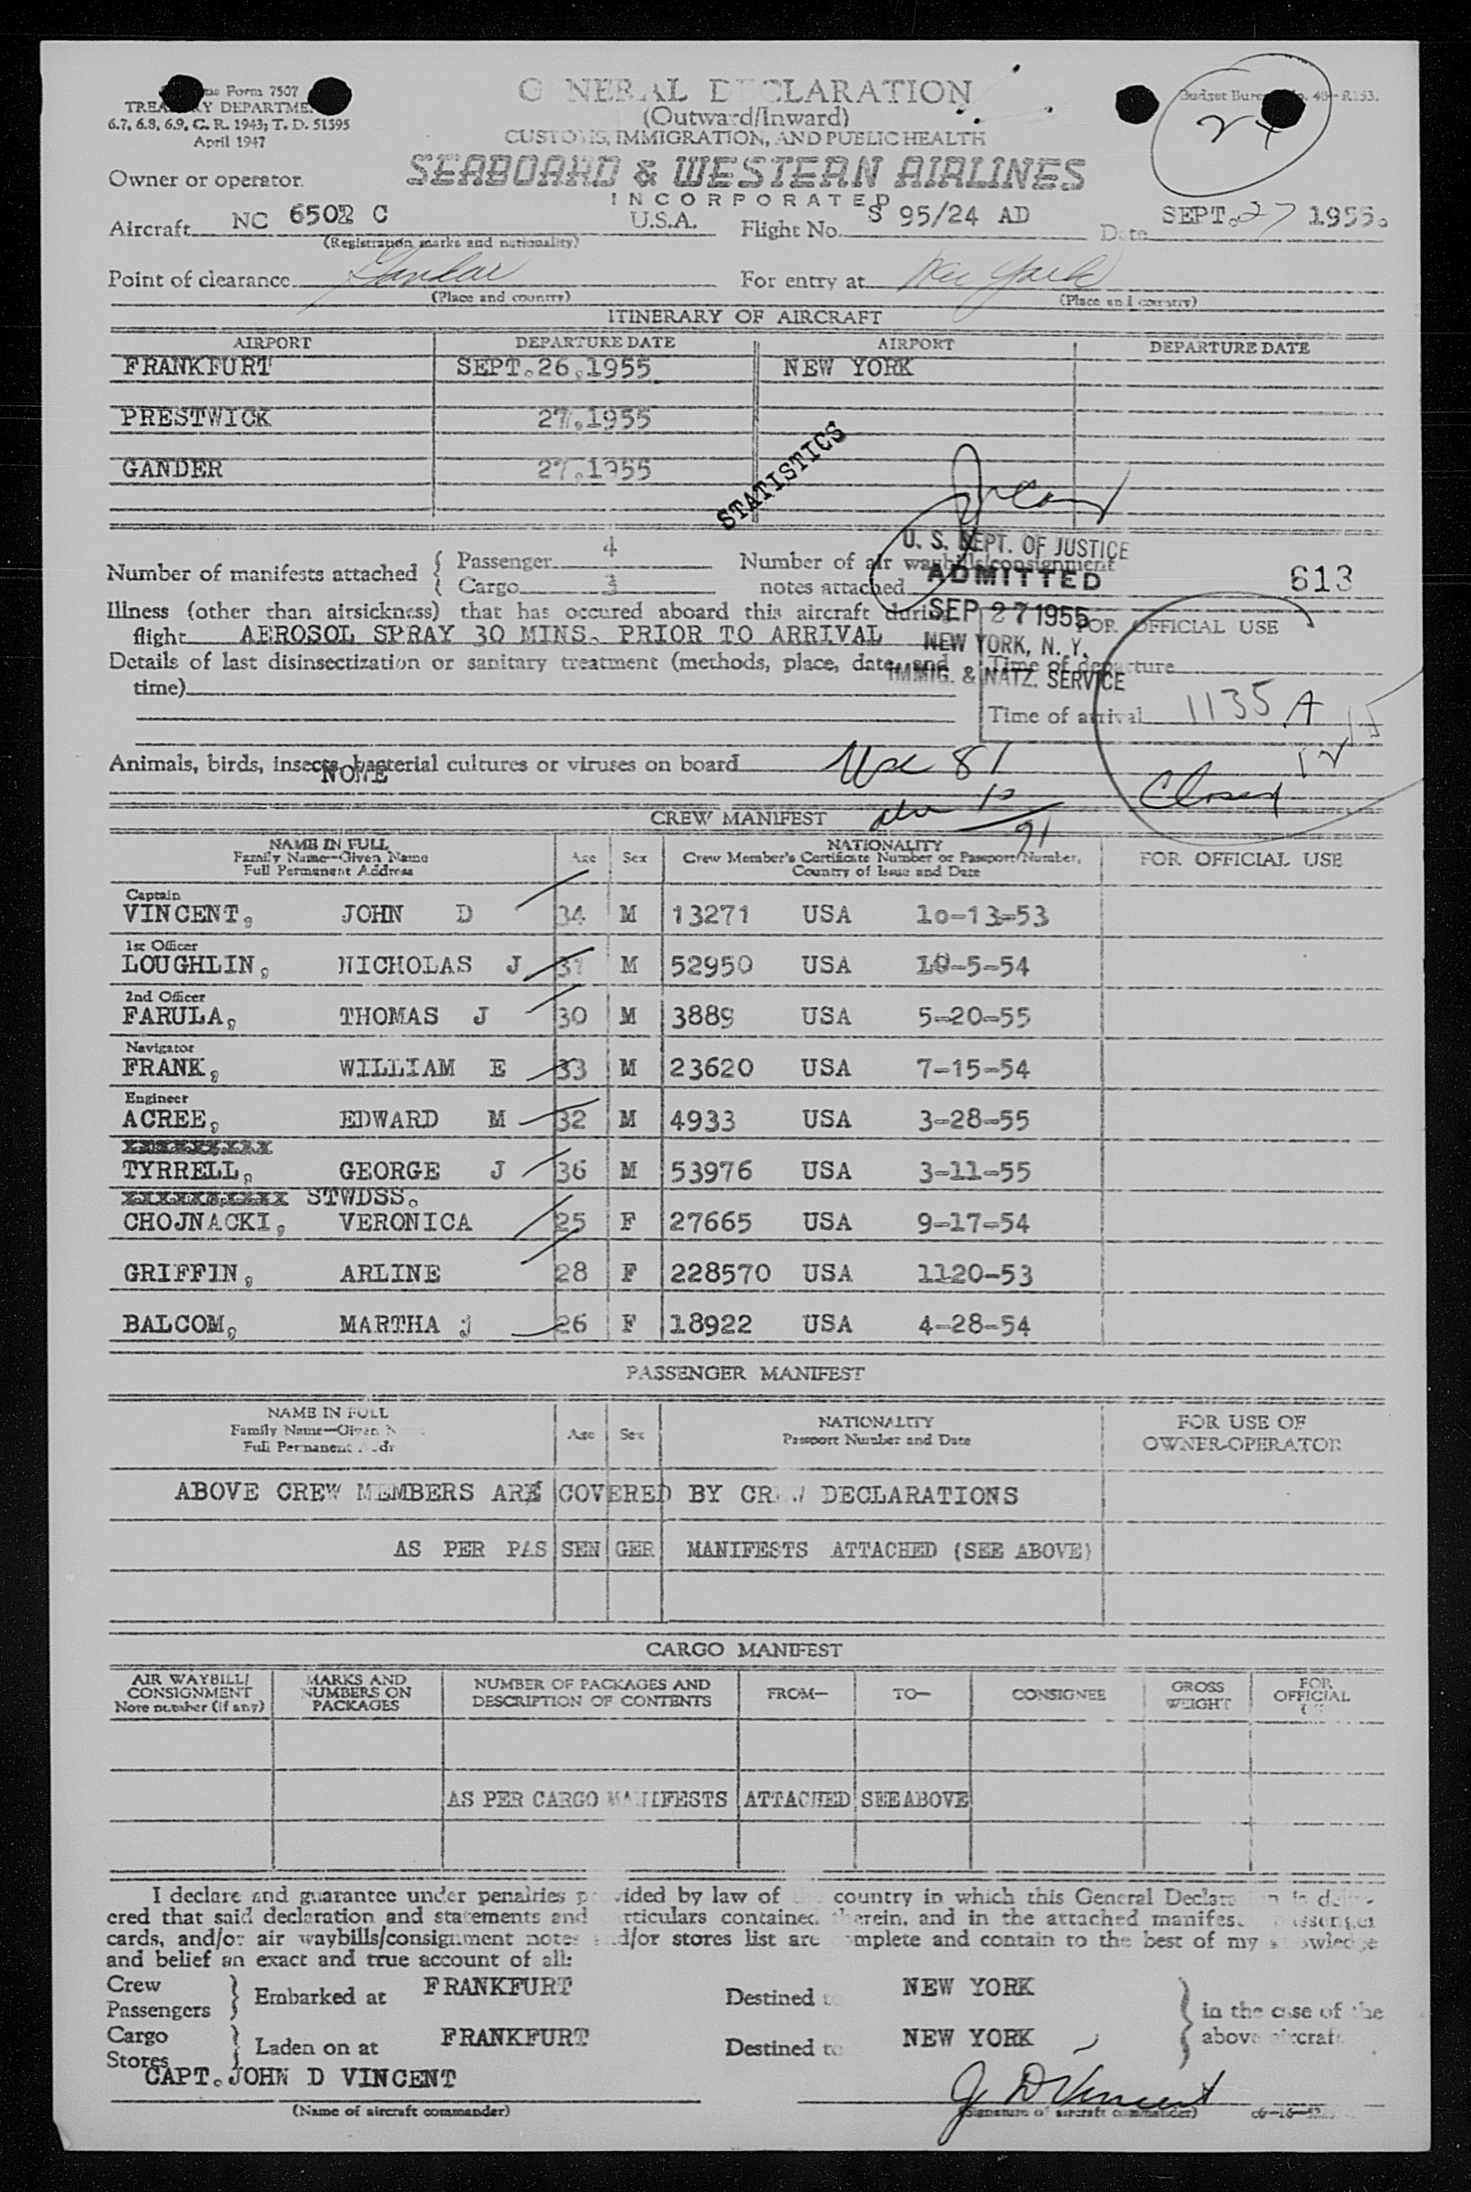 Form 7507
TREASURY DEPARTMENT
6.7, 6.8, 6.9, C. R. 1943; T. D. 51595
April 1947
GENERAL DECLARATION
(Outward/Inward)
CUSTOMS, IMMIGRATION, AND PUBLIC HEALTH
Budget Bureau No. 48-R153.
24
Owner or operator
SEABOARD & WESTERN AIRLINES
INCORPORATED
Aircraft NC 6502 C U.S.A. Flight No. S 95/24 AD Date SEPT. 27 1955.
(Registration marks and nationality)
Point of clearance Gander For entry at New York
(Place and country) (Place and country)
ITINERARY OF AIRCRAFT
AIRPORT DEPARTURE DATE AIRPORT DEPARTURE DATE
FRANKFURT SEPT. 26, 1955 NEW YORK
PRESTWICK 27, 1955
GANDER 27, 1955
STATISTICS
Number of manifests attached { Passenger 4
Cargo 3
Number of air waybills/consignment
notes attached 613
U. S. DEPT. OF JUSTICE
ADMITTED
SEP 27 1955
NEW YORK, N. Y.
IMMIG. & NATZ. SERVICE
Illness (other than airsickness) that has occured aboard this aircraft during
flight AEROSOL SPRAY 30 MINS. PRIOR TO ARRIVAL
FOR OFFICIAL USE
Details of last disinsectization or sanitary treatment (methods, place, date, and
time)
Time of departure
Time of arrival 1135 A
Animals, birds, insects, bacterial cultures or viruses on board
NONE
81
10
91
Closed
CREW MANIFEST
NAME IN FULL
Family Name—Given Name
Full Permanent Address
Age Sex
NATIONALITY
Crew Member's Certificate Number or Passport Number,
Country of Issue and Date
FOR OFFICIAL USE
Captain
VINCENT, JOHN D 34 M 13271 USA 10-13-53
1st Officer
LOUGHLIN, NICHOLAS J 31 M 52950 USA 10-5-54
2nd Officer
FARULA, THOMAS J 30 M 3889 USA 5-20-55
Navigator
FRANK, WILLIAM E 33 M 23620 USA 7-15-54
Engineer
ACREE, EDWARD M 32 M 4933 USA 3-28-55
TYRRELL, GEORGE J 36 M 53976 USA 3-11-55
STWDSS.
CHOJNACKI, VERONICA 25 F 27665 USA 9-17-54
GRIFFIN, ARLINE 28 F 228570 USA 1120-53
BALCOM, MARTHA J 26 F 18922 USA 4-28-54
PASSENGER MANIFEST
NAME IN FULL
Family Name—Given
Full Permanent
Age Sex
NATIONALITY
Passport Number and Date
FOR USE OF
OWNER-OPERATOR
ABOVE CREW MEMBERS ARE COVERED BY CREW DECLARATIONS
AS PER PASSENGER MANIFESTS ATTACHED (SEE ABOVE)
CARGO MANIFEST
AIR WAYBILL/
CONSIGNMENT
Note number (if any)
MARKS AND
NUMBERS ON
PACKAGES
NUMBER OF PACKAGES AND
DESCRIPTION OF CONTENTS
FROM— TO— CONSIGNEE
GROSS
WEIGHT
FOR
OFFICIAL
AS PER CARGO MANIFESTS ATTACHED SEE ABOVE
I declare and guarantee under penalties provided by law of the country in which this General Declaration is deliv-
ered that said declaration and statements and particulars contained therein, and in the attached manifest, passenger
cards, and/or air waybills/consignment notes and/or stores list are complete and contain to the best of my knowledge
and belief an exact and true account of all:
Crew
Passengers } Embarked at FRANKFURT Destined to NEW YORK
Cargo
Stores } Laden on at FRANKFURT Destined to NEW YORK
} in the case of the
above aircraft
CAPT. JOHN D VINCENT
J D Vincent
(Name of aircraft commander) (Signature of aircraft commander)